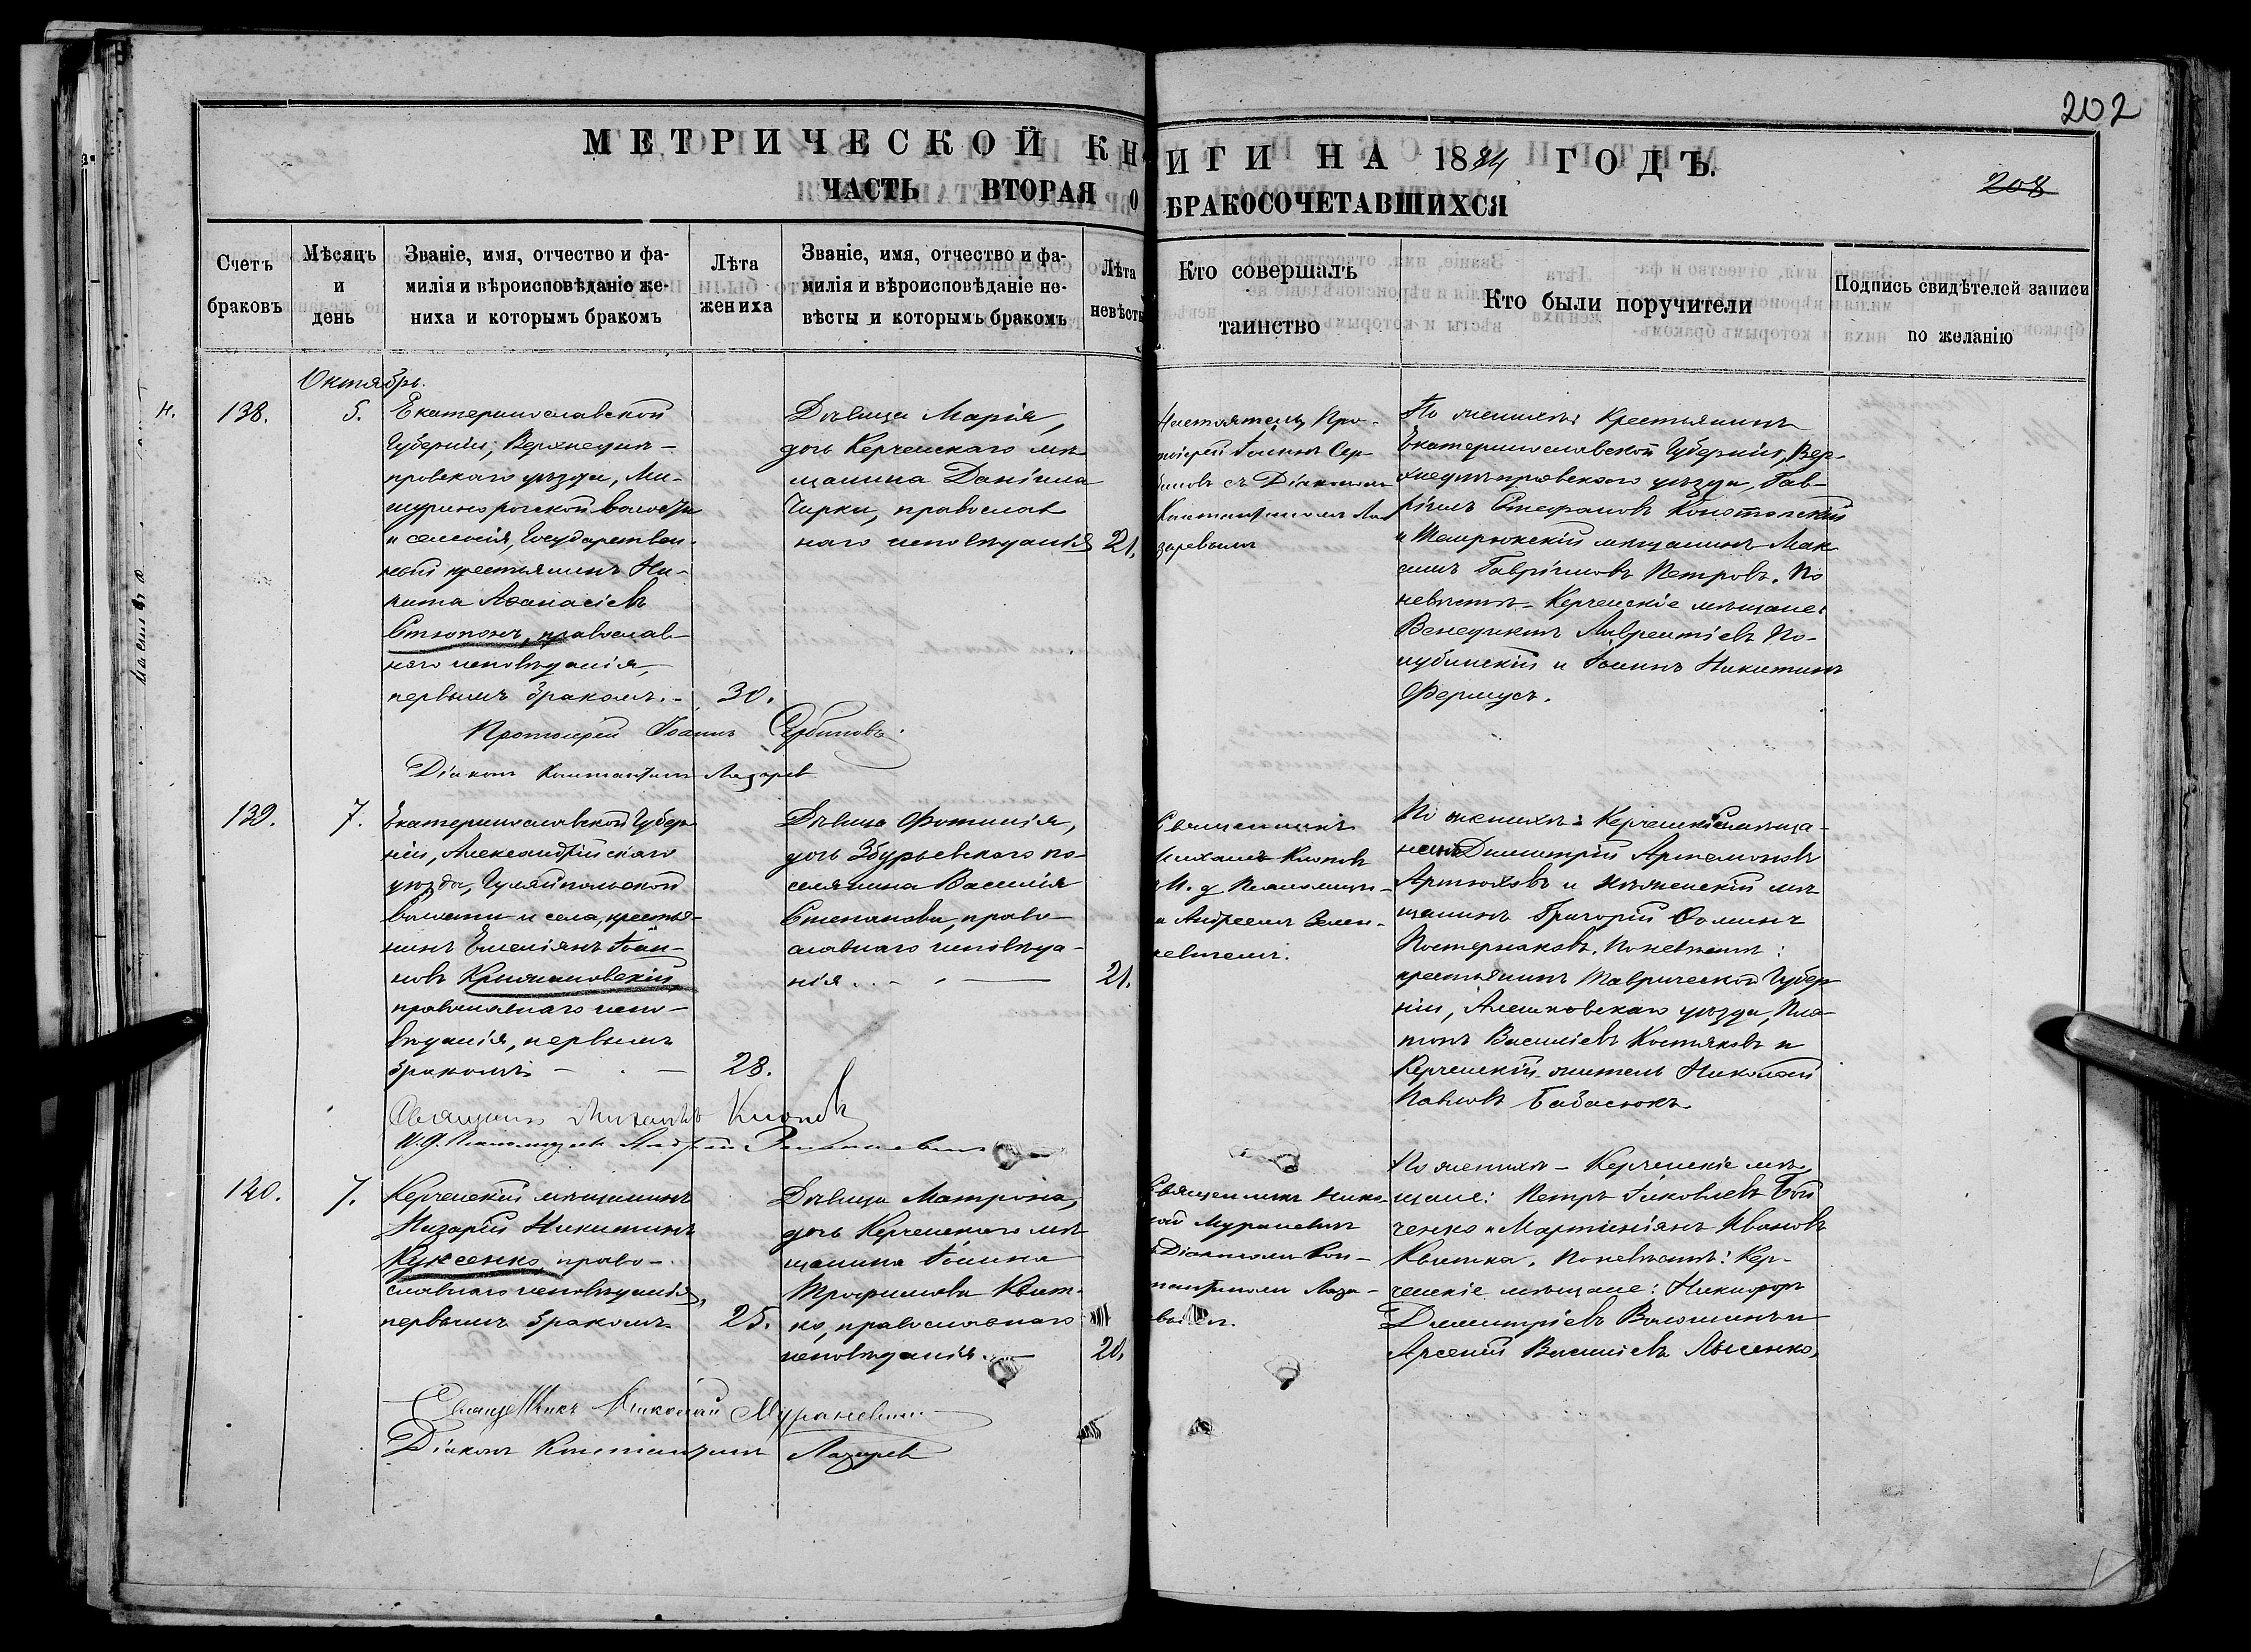 202
МЕТРИЧЕСКОЙ КНИГИ НА 1884 ГОДЪ.
208
ЧАСТЬ ВТОРАЯ О БРАКОСОЧЕТАВШИХСЯ
Счетъ браковъ
Мѣсяцъ и день
Званіе, имя, отчество и фа-
милія и вѣроисповѣданіе же-
ниха и которымъ бракомъ
Лѣта жениха
Званіе, имя, отчество и фа-
милія и вѣроисповѣданіе не-
вѣсты и которымъ бракомъ
Лѣта невѣсты
Кто совершалъ
таинство
Кто были поручители
Подпись свидѣтелей записи
по желанію
Октябрь.
138.
5.
Екатеринославской
Губерніи, Верхнеднѣ-
провскаго уѣзда, Ми-
шуринорогской волости
и селенія, Государствен-
ный крестьянинъ Ни-
кита Аѳанасіевъ
Стюпонъ, православ-
наго исповѣданія,
первымъ бракомъ.-
30.
Дѣвица Марія,
дочь Керченскаго мѣ-
щанина Даніила
Чирки, православ
наго исповѣданія
21.
Настоятель Про-
тоіерей Іоаннъ Сер-
биновъ съ Діакономъ
Константиномъ Ла-
заревымъ
По женихѣ: Крестьянинъ
Екатеринославской Губерніи, Вер-
хнеднѣпровскаго уѣзда, Гав-
ріилъ Стефановъ Конотопскій
и Темрюкскій мѣщанинъ Мак
симъ Гавріиловъ Петровъ. По
невѣстѣ - Керченскіе мѣщане:
Венедиктъ Лаврентіевъ По-
лубинскій и Іоаннъ Никитинъ
Фермусъ.
Протоіерей Іоаннъ Сербиновъ
Діаконъ Константинъ Лазарев
139.
7.
Екатеринославской Губер
ніи, Александрійскаго
уѣзда, Гуляйпольской
волости и села, крестья-
нинъ Емеліянъ Іоан-
новъ Крыжановскій
православнаго испо-
вѣданія, первымъ
бракомъ -
28.
Дѣвица Фотинія,
дочь Збурьевскаго по-
селянина Василія
Степанова, право-
славнаго исповѣда-
нія
21.
Священникъ
Михаилъ Клоповъ
И. д Псаломщи-
ка Андреемъ Зелен-
кевичемъ.
По женихѣ: Керченскій мѣща-
нинъ Димитрій Артемоновъ
Артюховъ и Нѣженскій мѣ
щанинъ Григорій Ѳоминъ
Постернаковъ. По невѣстѣ:
крестьянинъ Таврической Губер
ніи, Алешковскаго уѣзда, Пла-
тонъ Василіевъ Костяковъ и
Керченскій житель Николай
Павловъ Бабасюкъ.
Священникъ Михаилъ Клоповъ
И. д. Псаломщика Андрей
120.
7.
Керченскій мѣщанинъ
Назарій Никитинъ
Куксенко, право-
славнаго исповѣданія,
первымъ бракомъ
25.
Дѣвица Матрона,
дочь Керченскаго мѣ
щанина Іоанна
Трофимова Квит-
ко, православнаго
исповѣданія.
20.
Священникъ Нико-
лай Мураневичъ
Діакономъ Кон-
стантиномъ Лаза-
ревымъ.
По женихѣ - Керченскіе мѣ
щане: Петръ Іаковлевъ Бой
ченко и Мартиніянъ Ивановъ
Квитка. По невѣстѣ: Кер-
ченскіе мѣщане: Никифоръ
Димитріевъ Волошинъ и
Арсеній Василіевъ Лысенко,
Священникъ Николай Мураневичъ
Діаконъ Константинъ Лазарев